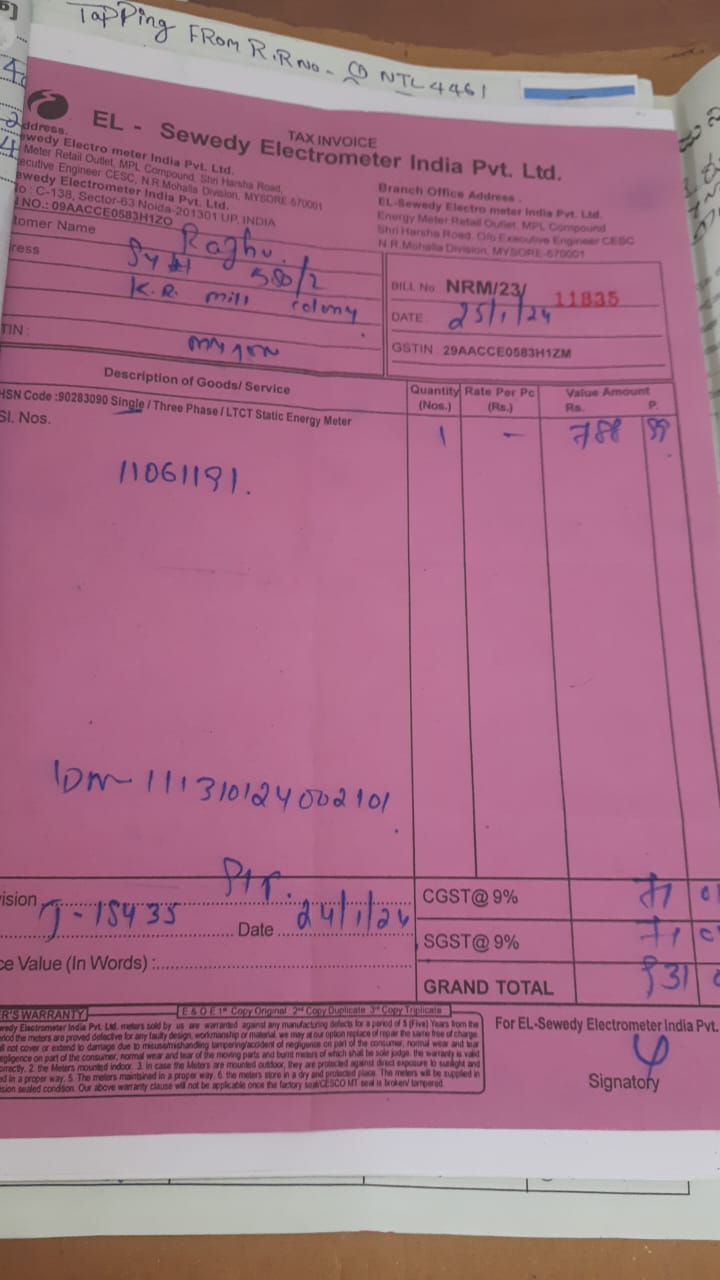 TAPPing FROM R.R No. - CD NTL 4461
TAX INVOICE
EL - Sewedy Electrometer India Pvt. Ltd.
ddress.
ewedy Electro meter India Pvt. Ltd.
Meter Retail Outlet, MPL Compound, Shri Harsha Road,
ecutive Engineer CESC, N.R.Mohalla Division, MYSORE-570001
ewedy Electrometer India Pvt. Ltd.
lo : C-138, Sector-63 Noida-201301 UP, INDIA
NO.: 09AACCE0583H1ZO
Branch Office Address .
EL-Sewedy Electro meter India Pvt. Ltd.
Energy Meter Retail Outlet, MPL Compound
Shri Harsha Road, O/o Executive Engineer CESC
N.R.Mohalla Division, MYSORE-570001
tomer Name Raghu.
ress 580/2
K.R. mill colony
TIN :
BILL No. NRM/23/ 11835
DATE : 25/1/24
GSTIN : 29AACCE0583H1ZM
Description of Goods/ Service
Quantity (Nos.) Rate Per Pc (Rs.) Value Amount Rs. P.
HSN Code :90283090 Single / Three Phase / LTCT Static Energy Meter
Sl. Nos.
1 - 788 99
11061191.
IDN- 111310124002101
ision J-15435 Date 24/1/24
ce Value (In Words) :
CGST@ 9% 71 01
SGST@ 9% 71
GRAND TOTAL 931
ER'S WARRANTY
E & O E 1st Copy Original 2nd Copy Duplicate 3rd Copy Triplicate
wedy Electrometer India Pvt. Ltd. meters sold by us are warranted against any manufacturing defects for a period of 5 (Five) Years from the
riod the meters are proved defective for any faulty design, workmanship or material, we may at our option replace of repair the same free of charge.
ll not cover or extend to damage due to misuse/mishandling tampering/accident of negligence on part of the consumer, normal wear and tear
egligence on part of the consumer, normal wear and tear of the moving parts and burnt meters of which shall be sole judge. the warranty is valid
orrectly. 2. the Meters mounted indoor. 3. in case the Meters are mounted outdoor, they are protected against direct exposure to sunlight and
ed in a proper way. 5. The meters maintained in a proper way. 6. the meters store in a dry and protected place. The meters will be supplied in
sion sealed condition. Our above warranty clause will not be applicable once the factory seal/CESCO MT seal is broken/ tampered.
For EL-Sewedy Electrometer India Pvt.
Signatory